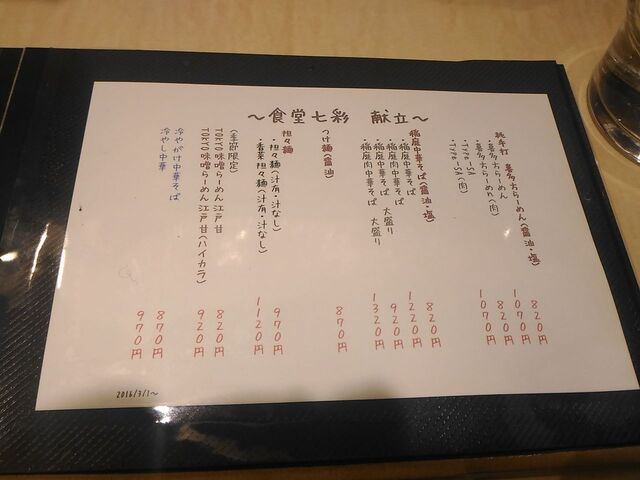 ～食堂七彩 献立～
純手打 喜多方らーめん(醤油・塩)
・喜多方らーめん 820円
・喜多方らーめん(肉) 1070円
・Type-SA 820円
・Type-SA(肉) 1070円
稲庭中華そば(醤油・塩)
・稲庭中華そば 820円
・稲庭肉中華そば 1220円
・稲庭中華そば 大盛り 920円
・稲庭肉中華そば 大盛り 1320円
つけ麺(醤油) 870円
担々麺
・担々麺(汁有・汁なし) 970円
・香菜担々麺(汁有・汁なし) 1120円
(季節限定)
TOKYO味噌らーめん江戸甘 820円
TOKYO味噌らーめん江戸甘(ハイカラ) 920円
冷やかけ中華そば 870円
冷やし中華 970円
2016/3/1～